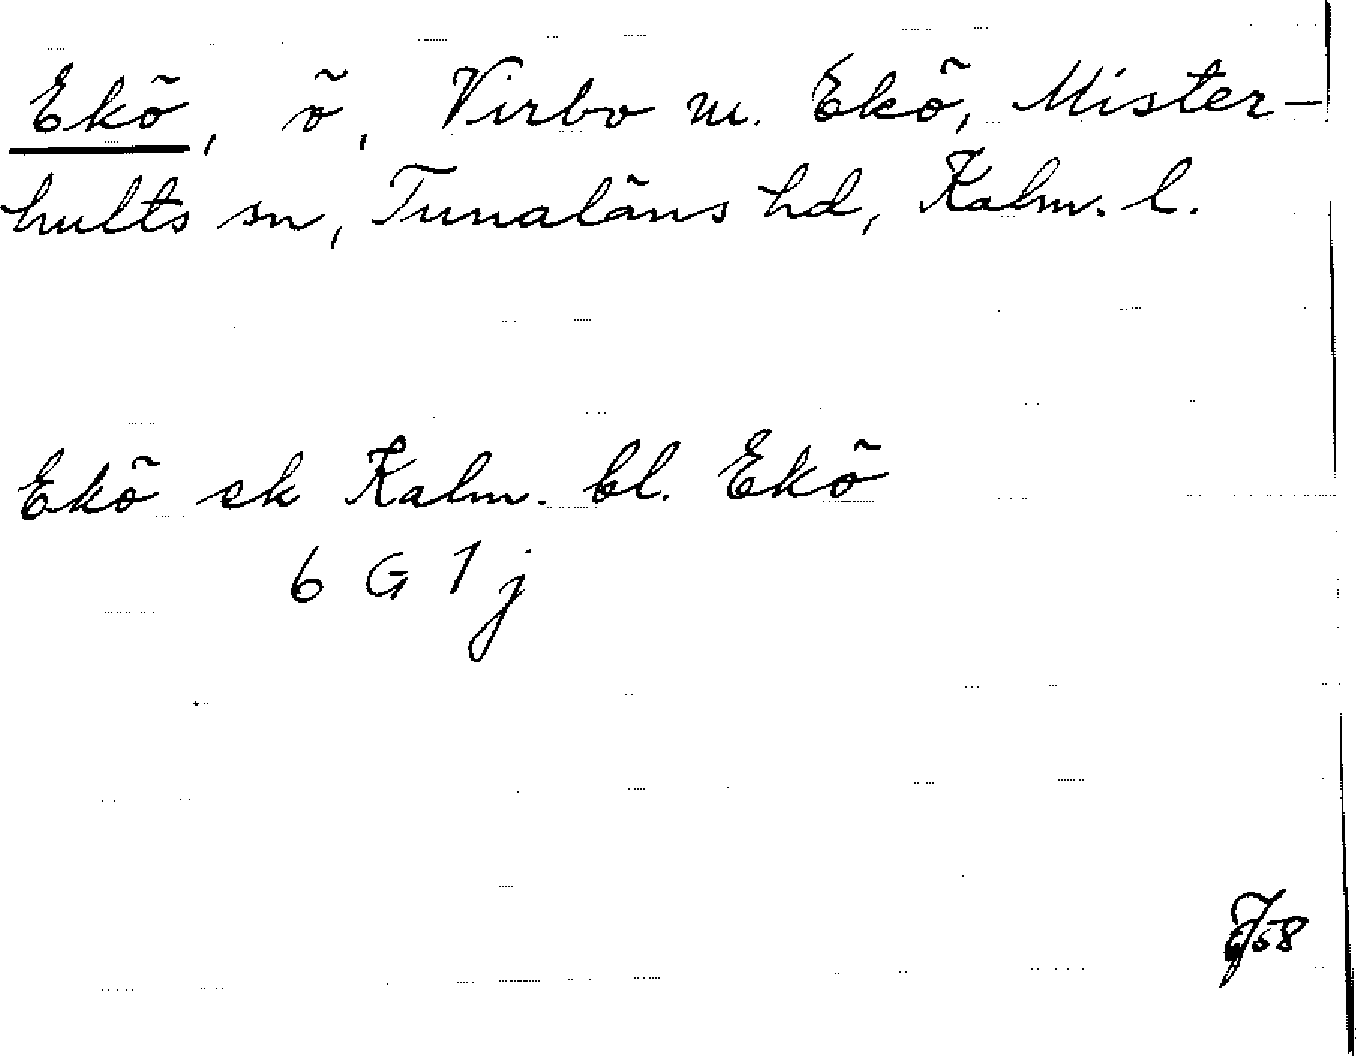 Ekö, ö, Virbo m. Ekö, Mister-
hults sn, Tunaläns hd, Kalm. l.
Ekö ek Kalm. bl. Ekö
6 G 1 j
58